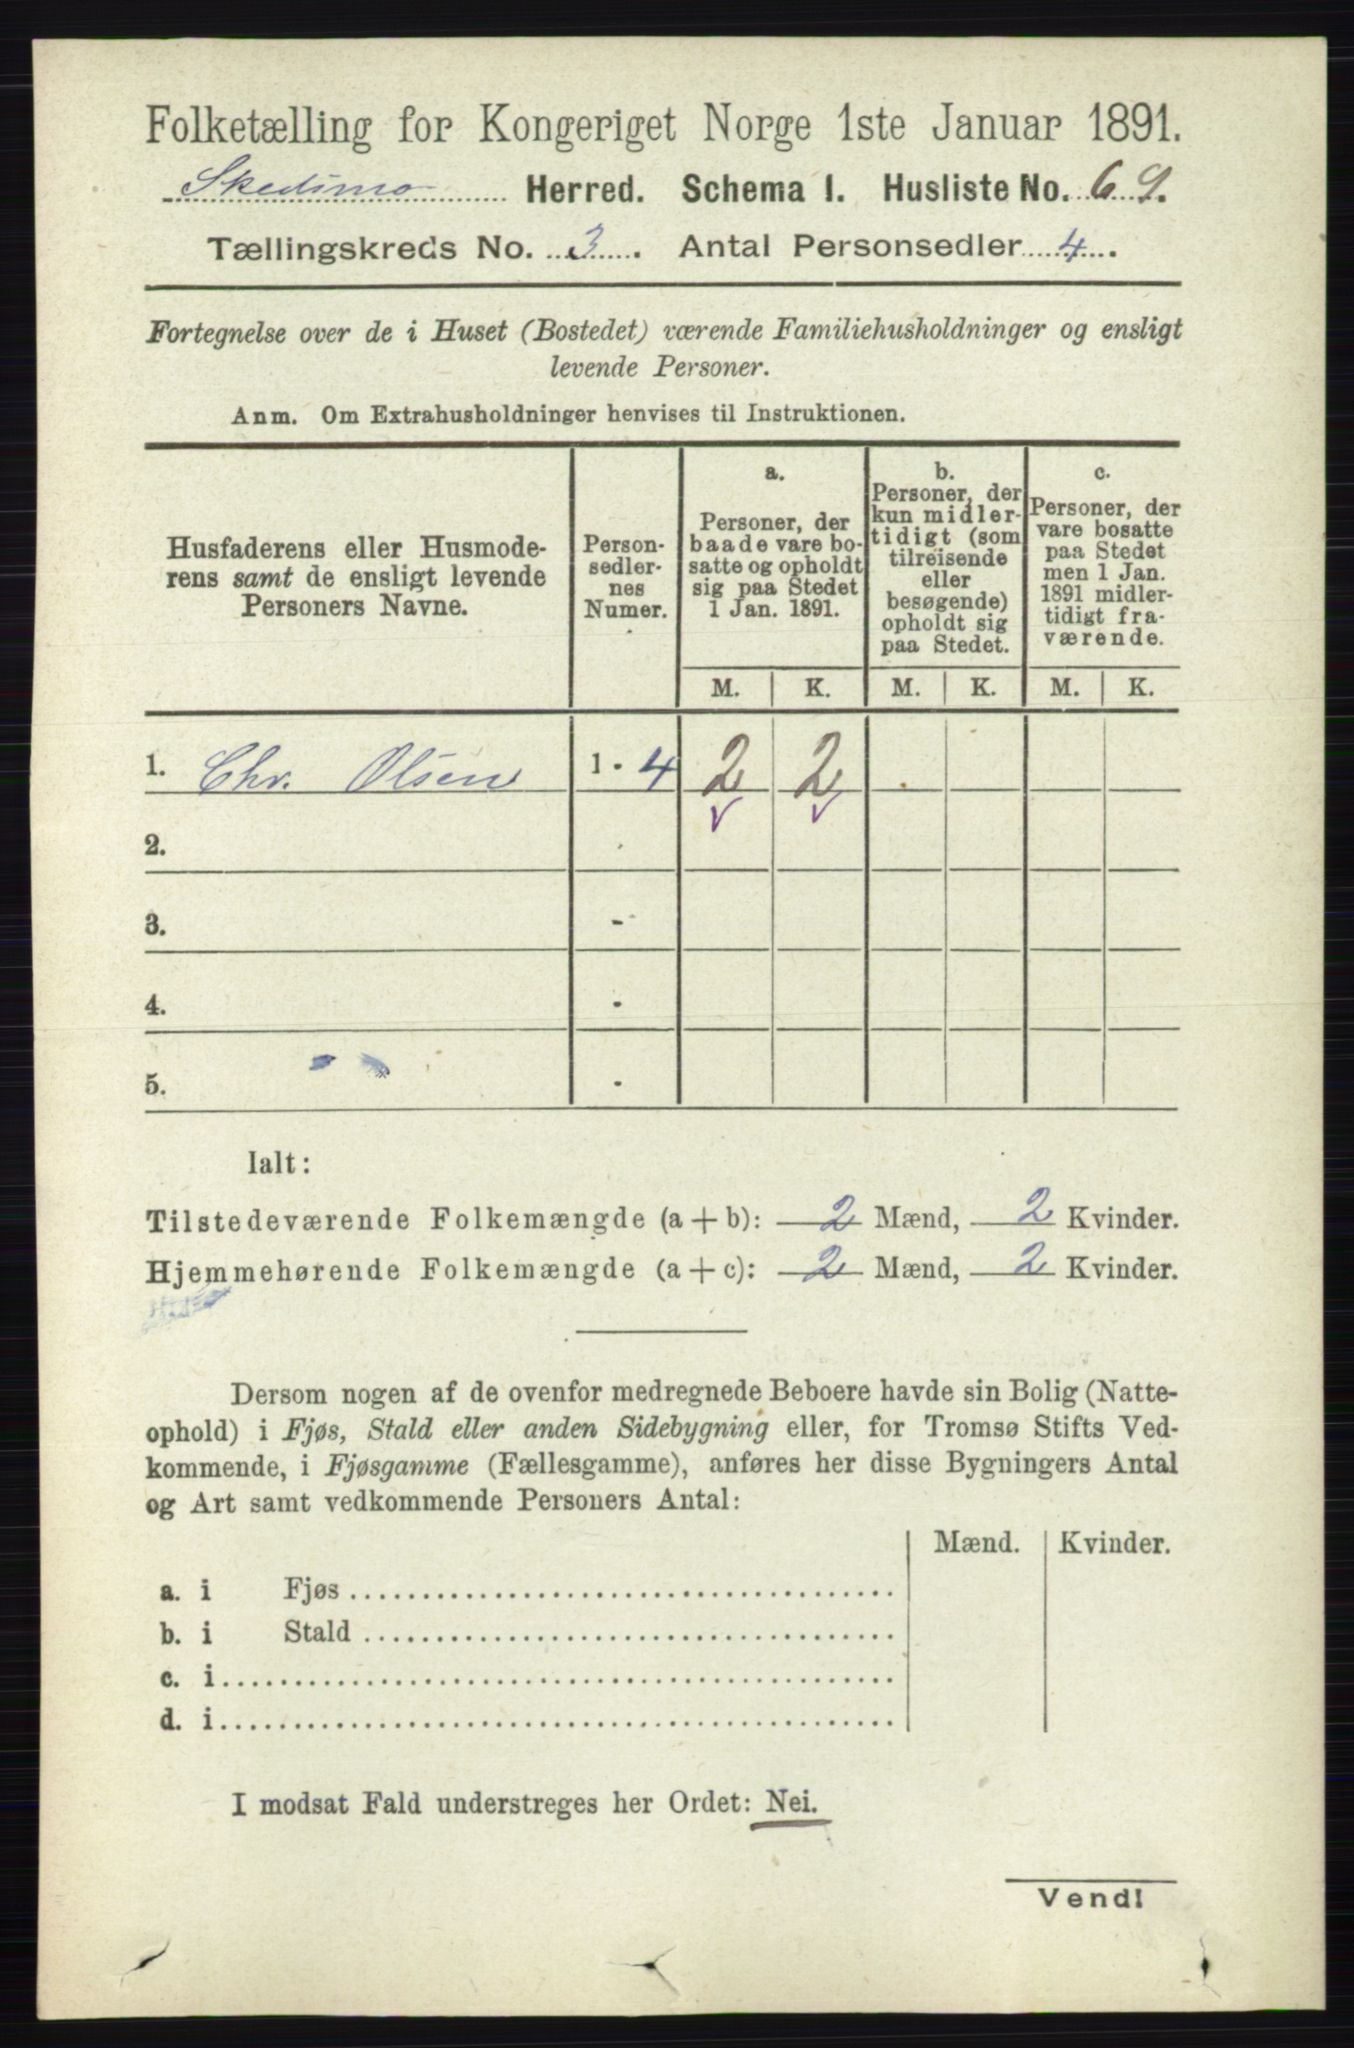 Folketælling for Kongeriget Norge 1ste Januar 1891.
Skedsmo Herred. Schema I. Husliste No. 69.
Tællingskreds No. 3. Antal Personsedler 4.
Fortegnelse over de i Huset (Bostedet) værende Familiehusholdninger og ensligt
levende Personer.
Anm. Om Extrahusholdninger henvises til Instruktionen.
Husfaderens eller Husmode-
rens samt de ensligt levende
Personers Navne.
Person-
sedler-
nes
Numer.
a.
Personer, der
baade vare bo-
satte og opholdt
sig paa Stedet
1 Jan. 1891.
b.
Personer, der
kun midler-
tidigt (som
tilreisende
eller
besøgende)
opholdt sig
paa Stedet.
c.
Personer, der
vare bosatte
paa Stedet
men 1 Jan.
1891 midler-
tidigt fra-
værende.
M. K. M. K. M. K.
1. Chr. Olsen 1 - 4 2 2
2.
3. -
4. -
5. -
Ialt:
Tilstedeværende Folkemængde (a + b): 2 Mænd, 2 Kvinder.
Hjemmehørende Folkemængde (a + c): 2 Mænd, 2 Kvinder.
Dersom nogen af de ovenfor medregnede Beboere havde sin Bolig (Natte-
ophold) i Fjøs, Stald eller anden Sidebygning eller, for Tromsø Stifts Ved-
kommende, i Fjøsgamme (Fællesgamme), anføres her disse Bygningers Antal
og Art samt vedkommende Personers Antal:
Mænd. Kvinder.
a. i Fjøs
b. i Stald
c. i
d. i
I modsat Fald understreges her Ordet: Nei.
Vend!